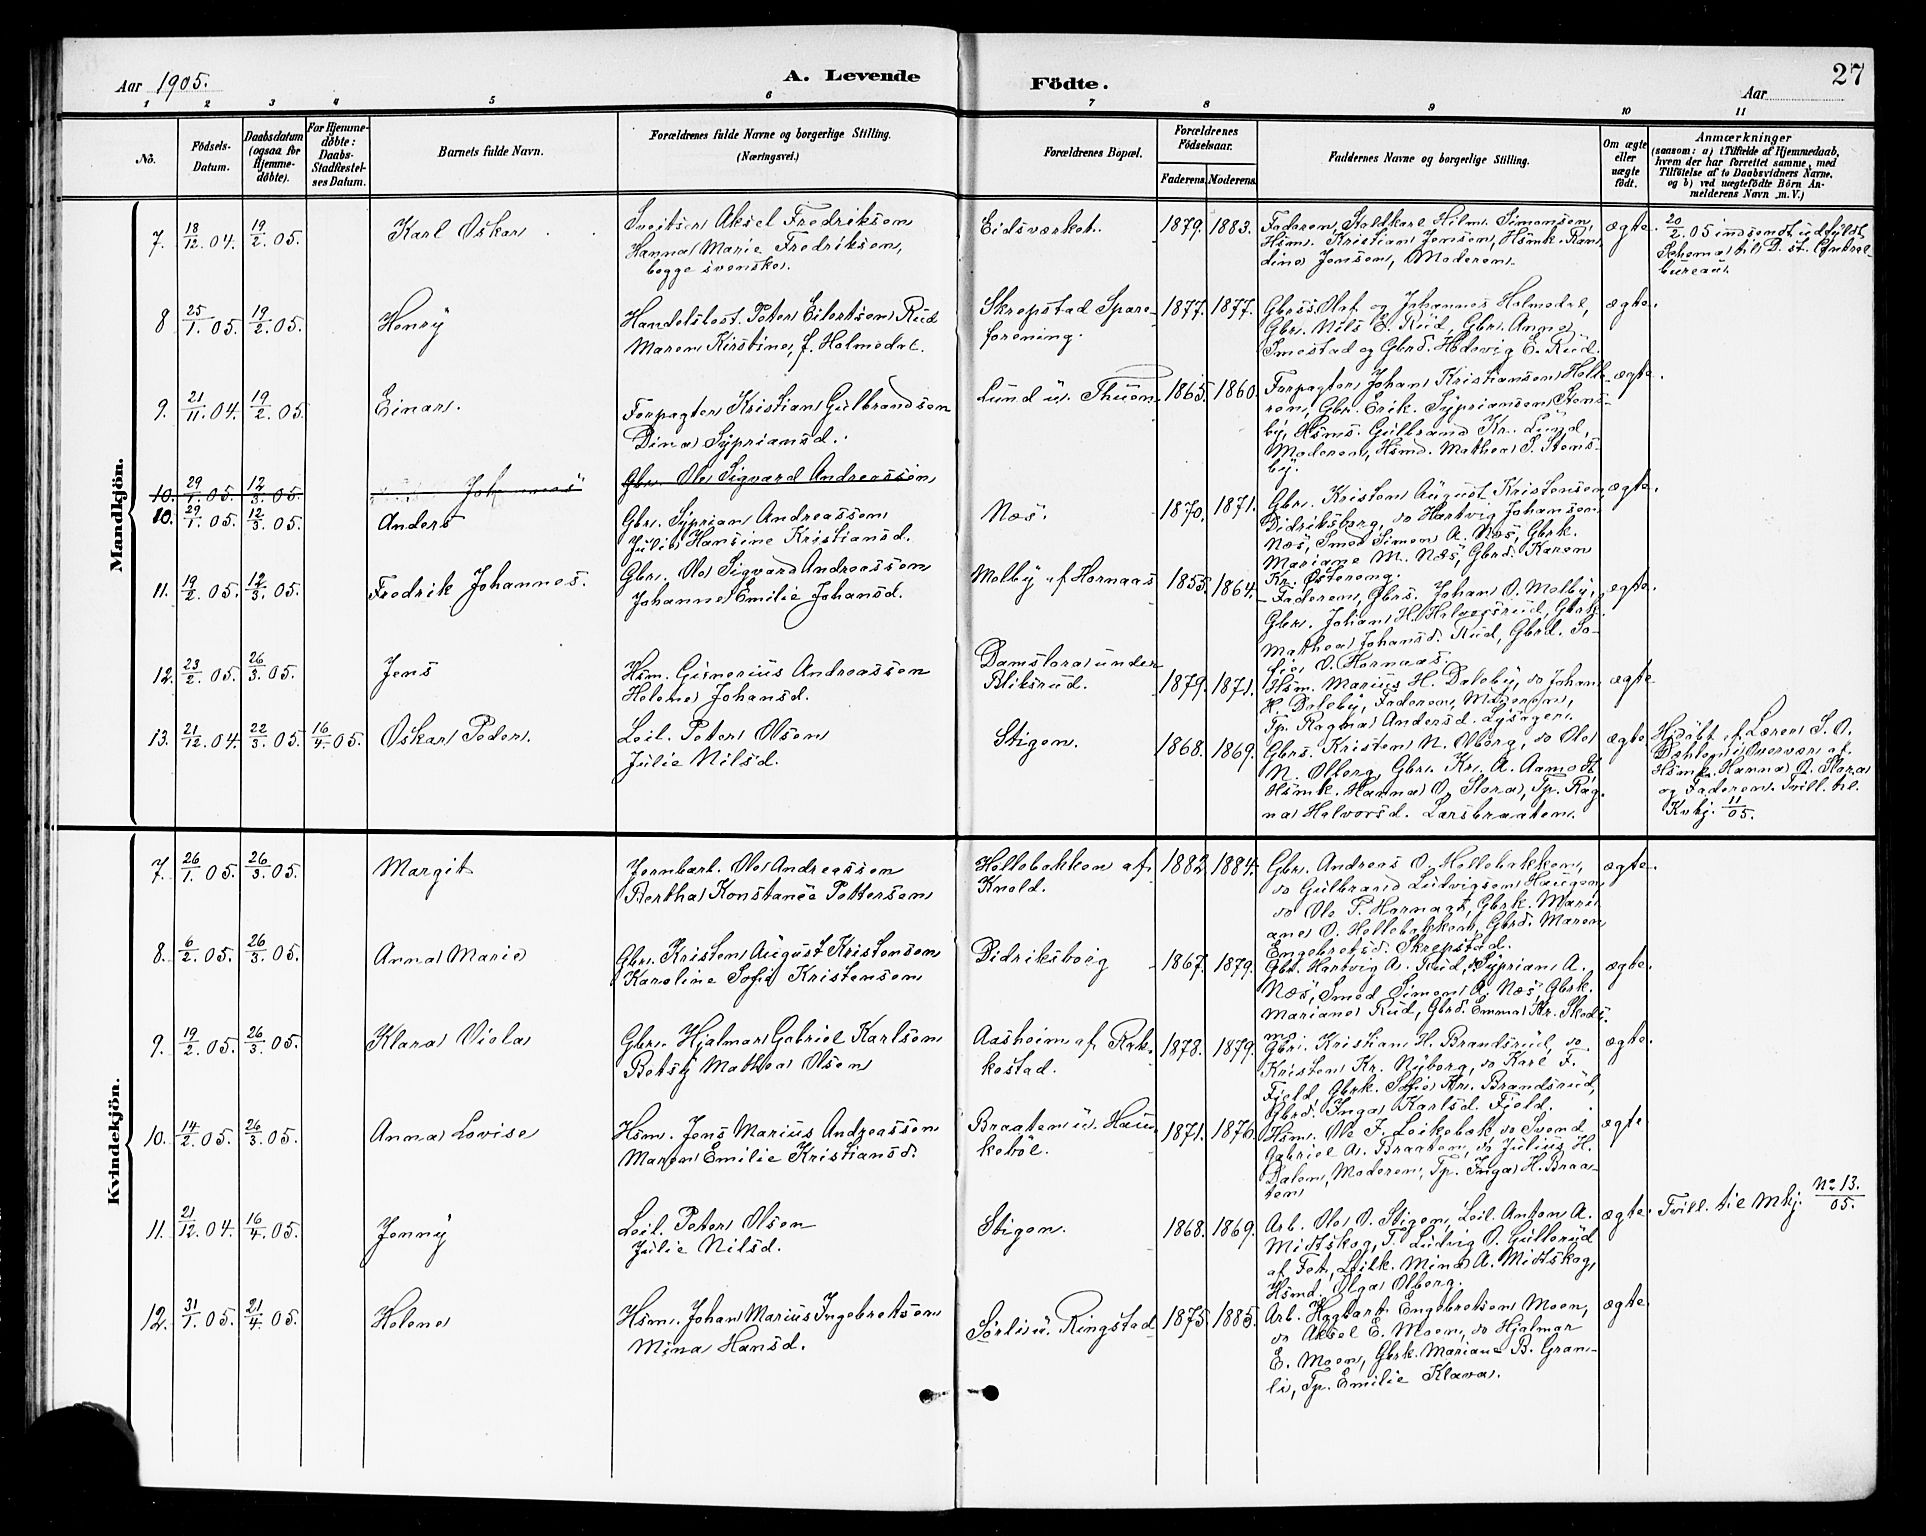 Aar 1905.
A. Levende
Födte.
Aar
27
1 2 3 4 5 6 7 8 9 10 11
No.
Födsels-
Datum.
Daabsdatum
(ogsaa for
Hjemme-
døbte).
For Hjemme-
döbte:
Daabs-
Stadfæstel-
ses Datum.
Barnets fulde Navn.
Forældrenes fulde Navne og borgerlige Stilling.
(Næringsvei.)
Forældrenes Bopæl.
Forældrenes
Födselsaar.
Faderens. Moderens.
Faddernes Navne og borgerlige Stilling.
Om ægte
eller
uægte
födt.
Anmærkninger
(saasom: a) i Tilfælde af Hjemmedaab,
hvem der har forrettet samme, med
Tilföielse af to Daabsvidners Navne.
og b) ved uægtefödte Börn An-
melderens Navn m. V.)
Mandkjön.
7. 18/12 04. 19/2 05. Karl Oskar Sveitser Aksel Fredriksen
Hanna Marie Fredriksen,
begge svenske.
Eidsværket. 1879. 1883. Faderen, Staldkarl Hilm. Simonsen,
Hsm. Kristian Jensen, Hsmk. Ran-
dine Jensen, Moderen.
ægte. 20/2 05 indsendt udfyldt
Schema til D. st. Central-
bureau.
8 25/1 05. 19/2 05. Henry Handelsbest. Peter Eilertsen Rud
Maren Kirstine, f. Holmedal.
Skrepstad Spare-
forening. 1877. 1877. Gbrss. Olaf og Johannes Holmedal,
Gbr. Nils E. Rud, Gbr. Anne
Smestad og Gbrd. Hedevig E. Rud.
ægte.
9. 21/11 04. 19/2 05. Einar. Forpagter Kristian Gulbrandsen
Dina Sypriansd.
Lund u. Thuen 1865. 1860. Forpagter Johan Kristiansen Helle-
ren, Gbr. Erik Sypriansen Stens-
by, Hsms. Gulbrand Kr. Lund,
Moderen, Hsmd. Mathea S. Stens-
by.
ægte.
10. 29/1 05. 12/3 05. Johannes Gbr. Ole Sigvard Andreassen
10. 29/1 05. 12/3 05. Anders Gbr. Syprian Andreassen
Julie Hansine Kristiansd.
Næs. 1870. 1871. Gbr. Kristen August Kristensen
Didriksborg, do Hartvig Johansen
Næs, Smed Simen A. Næs, Gbrk.
Mariane M. Næs, Gbrd. Karen
Kr. Østereng.
ægte.
11. 19/2 05. 12/3 05. Fredrik Johannes. Gbr. Ole Sigvard Andreassen
Johanne Emilie Johansd.
Melby af Hornaas 1855. 1864. Faderen, Gbrs. Johan O. Melby,
Gbr. Johan H. Halvorsrud, Gbrk.
Mathea Johansd. Rud, Gbrd. So-
fie O. Hornaas.
ægte.
12. 23/2 05. 26/3 05. Jens Hsm. Gunerius Andreassen
Helene Johansd.
Damslora under
Bliksrud. 1879. 1871. Hsm. Marius H. Daleby, do Johan
H. Daleby, Faderen, Moderen,
Tp. Ragna Andersd. Lysager.
ægte
13. 21/12 04. 22/3 05. 16/4 05. Oskar Peder. Leil. Peter Olsen
Julie Nilsd.
Stigen. 1868. 1869. Gbrs. Kristen N. Olberg, do Ole
N. Olberg, Gbr. Kr. A. Aamodt,
Hsmk. Hanna O. Slora, Tp. Rag-
na Halvorsd. Larsbraaten.
ægte. Hjdøbt af Lærer S. O.
Dahlen i Overvær af
Hsmk. Hanna O. Slora
og Faderen. Tvill. til
Kvkj. 11/05.
Kvindekjön.
7. 26/1 05. 26/3 05. Margit Jernbarb. Ole Andreassen
Bertha Konstance Pettersen
Hellebakken af
Knold. 1882. 1884. Gbr. Andreas O. Hellebakken,
do Gulbrand Ludvigsen Haugen,
do Ole P. Hornaas, Gbrk. Mari-
ane O. Hellebakken, Gbrd. Maren
Engebretsd. Skrepstad.
ægte.
8. 6/2 05. 26/3 05. Anna Marie Gbr. Kristen August Kristensen
Karoline Sofie Kristensen
Didriksborg 1867. 1879. Gbr. Hartvig A. Rud, do Syprian A.
Næs, Smed Simen A. Næs, Gbrk.
Mariane Rud, Gbrd. Emma Kr. Skeds-
mo.
ægte.
9. 19/2 05. 26/3 05. Klara Viola Gbr. Hjalmar Gabriel Karlsen
Betsy Mathea Olsen
Aasheim af Rak-
kestad. 1878. 1879. Gbr. Kristian H. Brandsrud, do
Kristen Kr. Nyborg, do Karl F.
Fjeld, Gbrk. Sofie Kr. Brandsrud,
Gbrd. Inga Karlsd. Fjeld.
ægte.
10. 14/2 05. 26/3 05. Anna Lovise Hsm. Jens Marius Andreassen
Maren Emilie Kristiansd.
Braaten u. Hau-
kebøl. 1871. 1876. Hsm. Ole F. Leikebæk, do Svend
Gabriel A. Braaten, do Julius H.
Dalen, Moderen, Tp. Inga H. Braa-
ten
ægte
11. 21/12 04. 16/4 05. Jenny Leil. Peter Olsen
Julie Nilsd.
Stigen. 1868. 1869. Arb. Ole O. Stigen, Leil. Anton A.
Midtskog, T. Ludvig O. Gullerud
af Fet, Leilk. Mina A. Midtskog,
Hsmd. Olga Olberg.
ægte. Tvill. til Mkj. No 13./05.
12. 31/1 05. 21/4 05. Helene Hsm. Johan Marius Ingebretsen
Mina Hansd.
Sørli u. Ringstad 1875. 1885. Arb. Hagbart Engebretsen Moen,
do Aksel E. Moen, do Hjalmar
E. Moen, Gbrk. Mariane B. Gran-
li, Tp. Emilie Klava.
ægte